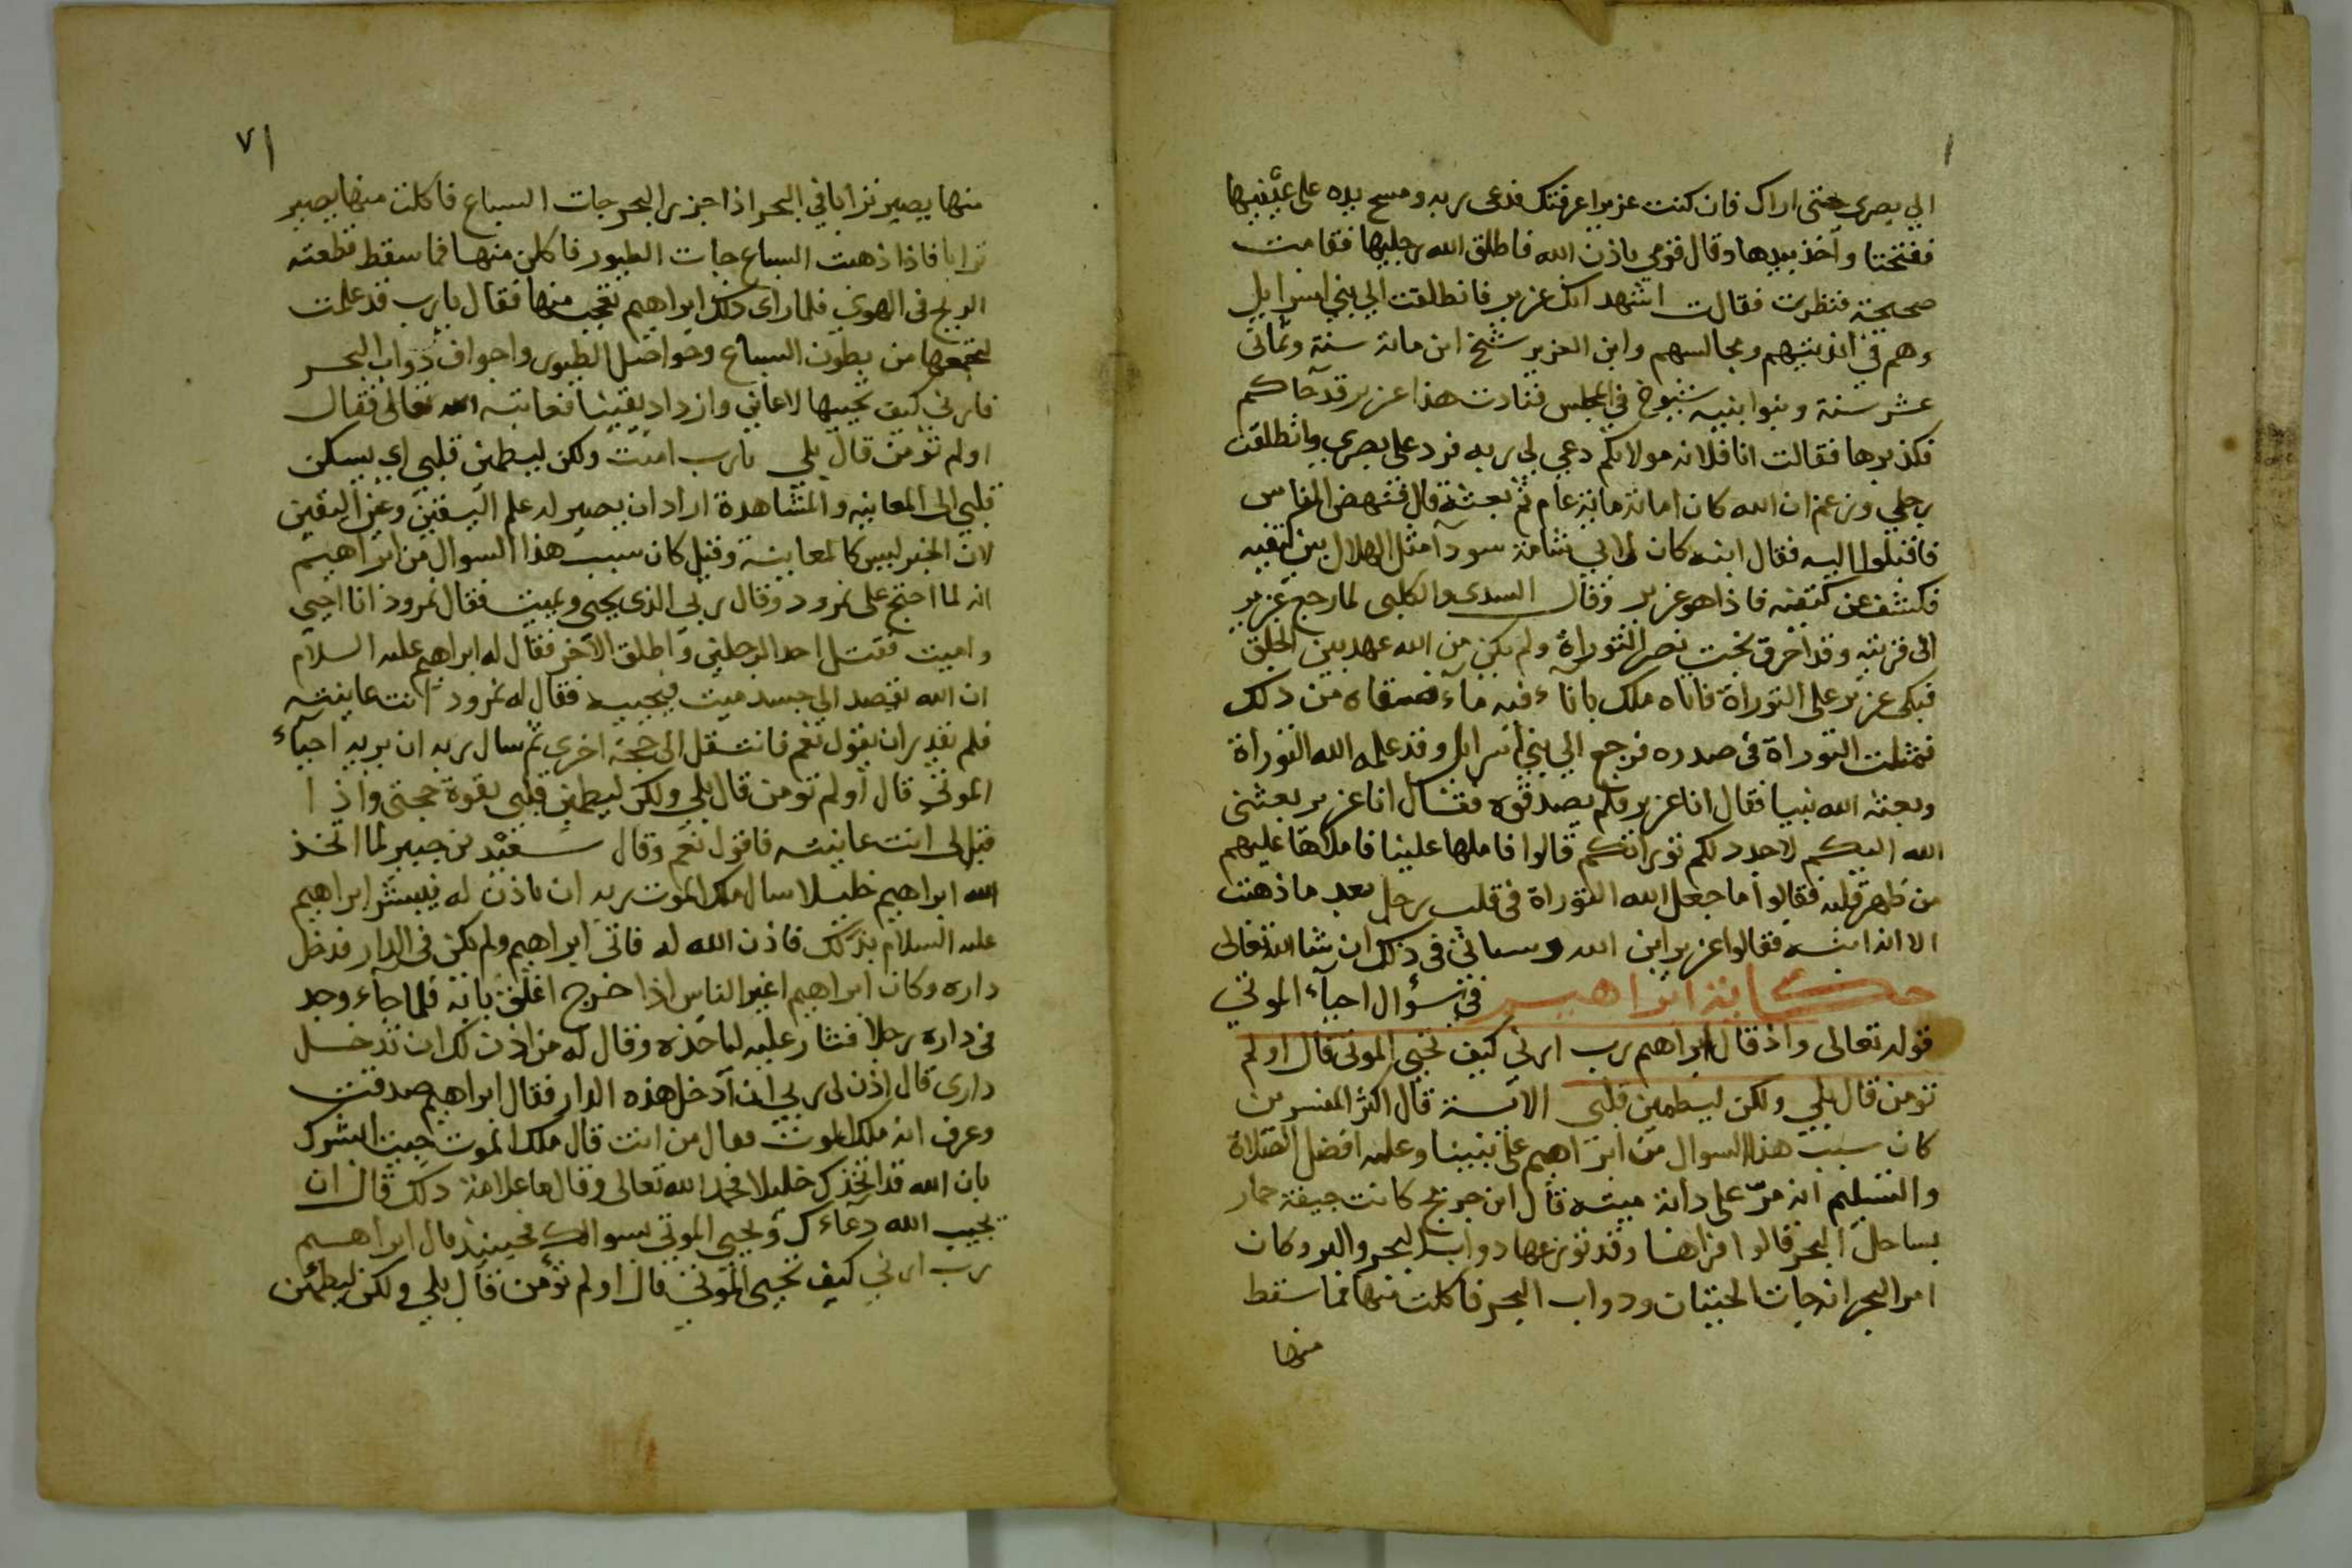 الي بصري حتى اراك فان كنت عزيرا عرفتك فدعى ربه ومسح بيده على عينيها
ففتحتا وآخذ بيدها وقال قومي باذن الله فاطلق الله رجليها فقامت
صحيحة فنظرت فقالت اشهد انك عزير فانطلقت الي بني اسرايل
وهم في انديتهم ومجالسهم وابن العزير شيخ ابن مائة سنة وثماني
عشر سنة وبنوا بنيه شيوخ في المجلس فنادت هذا عزير قد جاكم
فكذبوها فقالت انا فلانه مولاتكم دعي لي ربه فرد على بصري وانطلقت
رجلي وزعم ان الله كان اماته مائة عام ثم بعثه قال فنهض الناس
فاقبلوا اليه فقال ابنه كان لابي شامة سودآ مثل الهلال بين كتفيه
فكشف عن كتفيه فاذا هو عزير وقال السدى والكلبى لما رجع عزير
الى قريته وقد احرق بخت نصر التوراة ولم يكن من الله عهد بين الخلق
فبكى عزير على التوراة فاتاه ملك باناء فيه مآء فسقاه من ذلك
فمثلت التوراة فى صدره فرجع الي بني اسرايل وقد علمه الله التوراة
وبعثه الله نبيا فقال انا عزير فلم يصدقوه فقال انا عزير بعثنى
الله اليكم لاجدد لكم توراتكم قالوا فاملها علينا فاملاها عليهم
من ظهر قلبه فقالوا ما جعل الله التوراة فى قلب رجل بعد ما ذهبت
الا انه ابنه فقالوا عزير ابن الله وسياتى فى ذلك ان شا الله تعالى
حكاية ابراهيم في سؤال احيآء الموتي
قوله تعالى واذ قال ابراهيم رب ارنى كيف تحيى الموتى قال اولم
تومن قال بلي ولكن ليطمين قلبى الآية قال اكثر المفسرين
كان سبب هذا السوال من ابراهيم على نبينا وعليه افضل الصلاة
والتسليم انه مرّ على دابة ميته قال ابن جريج كانت جيفة حمار
بساحل البحر قالوا فراها وقد توزعها دواب البحر والبر وكان
امر البحر انه جات الحيتان ودواب البحر فاكلت منها فما سقط
منها
٧١
منها يصير ترابا في البحر اذا جزر البحر جات السباع فاكلت منها يصير
ترابا فاذا ذهبت السباع جات الطيور فاكلن منها فما سقط قطعته
الريح فى الهوي فلما راى ذلك ابراهيم تعجب منها فقال يارب قد علمت
لتجمعها من بطون السباع وحواصل الطيور واجواف دواب البحر
فارنى كيف تحييها لاعاين وازداد يقينا فعاتبه الله تعالى فقال
اولم تؤمن قال بلي يارب امنت ولكن ليطمين قلبى اي يسكن
قلبي الى المعاينه والمشاهدة اراد ان يصير له علم اليقين وعين اليقين
لان الخبر ليس كالمعاينة وقيل كان سبب هذا السوال من ابراهيم
انه لما احتج على نمرود وقال ربي الذى يحيى ويميت فقال نمرود انا احيي
واميت فقتل احد الرجلين واطلق الآخر فقال له ابراهيم عليه السلام
ان الله يقصد الى جسد ميت فيحييه فقال له نمرود انت عاينته
فلم يقدر ان يقول نعم فانتقل الى حجة اخرى ثم سال ربه ان يريه احيآء
الموتى قال أولم تومن قال بلي ولكن ليطمين قلبى بقوة حجتى واذا
قيل لي انت عاينته فاقول نعم وقال سعيد بن جبير لما اتخذ
الله ابراهيم خليلا سال ملك الموت ربه ان ياذن له فيبشر ابراهيم
عليه السلام بذلك فاذن الله له فاتى ابراهيم ولم يكن فى الدار فدخل
داره وكان ابراهيم اغير الناس اذا خرج اغلق بابه فلما جآء وجد
فى داره رجلا فثار عليه لياخذه وقال له من اذن لك ان تدخل
دارى قال اذن لي ربي ان آدخل هذه الدار فقال ابراهيم صدقت
وعرف انه ملك الموت فقال من انت قال ملك الموت جيت ابشرك
بان الله قد اتخذك خليلا فحمد الله تعالى وقال ما علامة ذلك قال ان
يجيب الله دعآءك ويحيي الموتي بسوالك فحينيذ قال ابراهيم
رب ارني كيف تحيى الموتى قال اولم تؤمن قال بلي ولكن ليطمئن